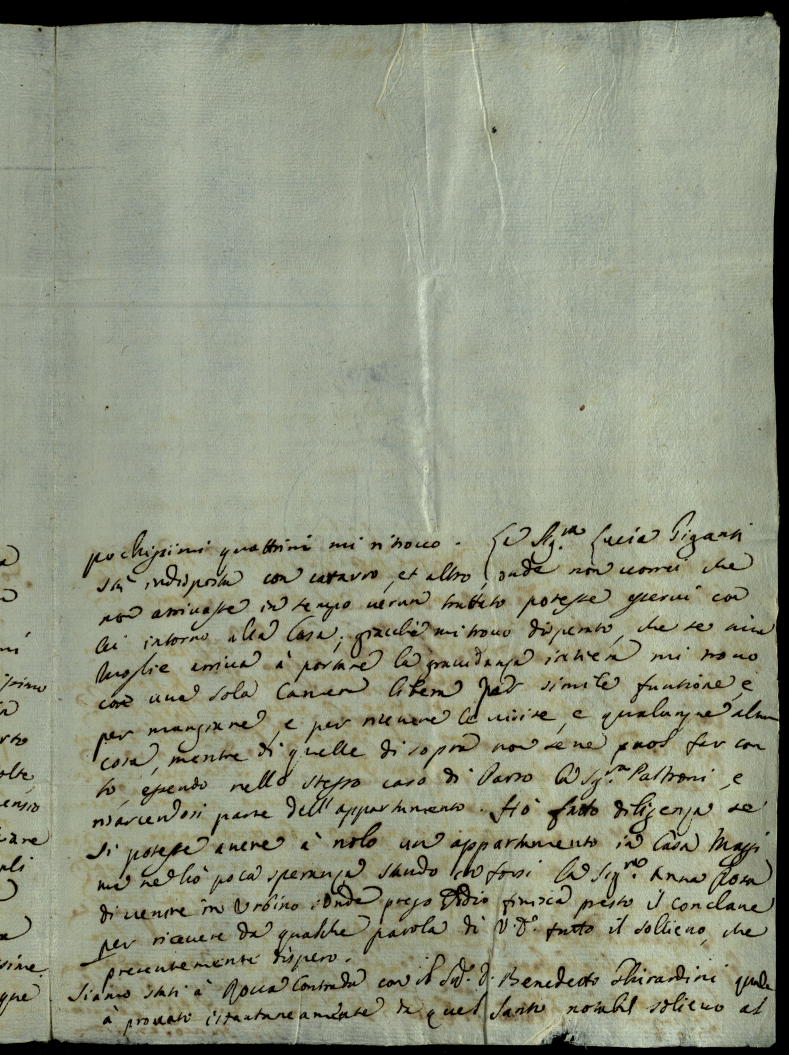 pochissimi quattrini mi ritrovo. La Sig.ra Lucia Giganti
stà indisposta con catarro, et altro, onde non vorrei che
non arrivasse in tempo verun trattato potesse esservi con
lei intorno alla Casa; giacchè mi trovo disperato, che se mia
Moglie arriva à portare la gravidanza intiera mi trovo
con una sola Camera libera per simile funtione, e
per mangiare, e per ricevere le visite, e qualunque altra
cosa, mentre di quelle di sopra non se ne puol far con
to, essendo nello stesso caso di Parto la Sig.ra Pastroni, e
risarcendosi parte dell'appartamento. Hò fatto diligenza se
si potesse avere à nolo un appartamento in Casa Maggi
ma ne hò poca speranza stando in forsi la Sig.ra Anna Rosa
di venire in Urbino onde prego Iddio finisca presto il conclave
per ricevere da qualche parola di V.S. tutto il sollievo, che
presentemente dispero.
Siamo stati à Rocca Contrada con il Sig. D. Benedetto Ghirardini quale
à provato istantaneamente da quel Santo notabil solievo al